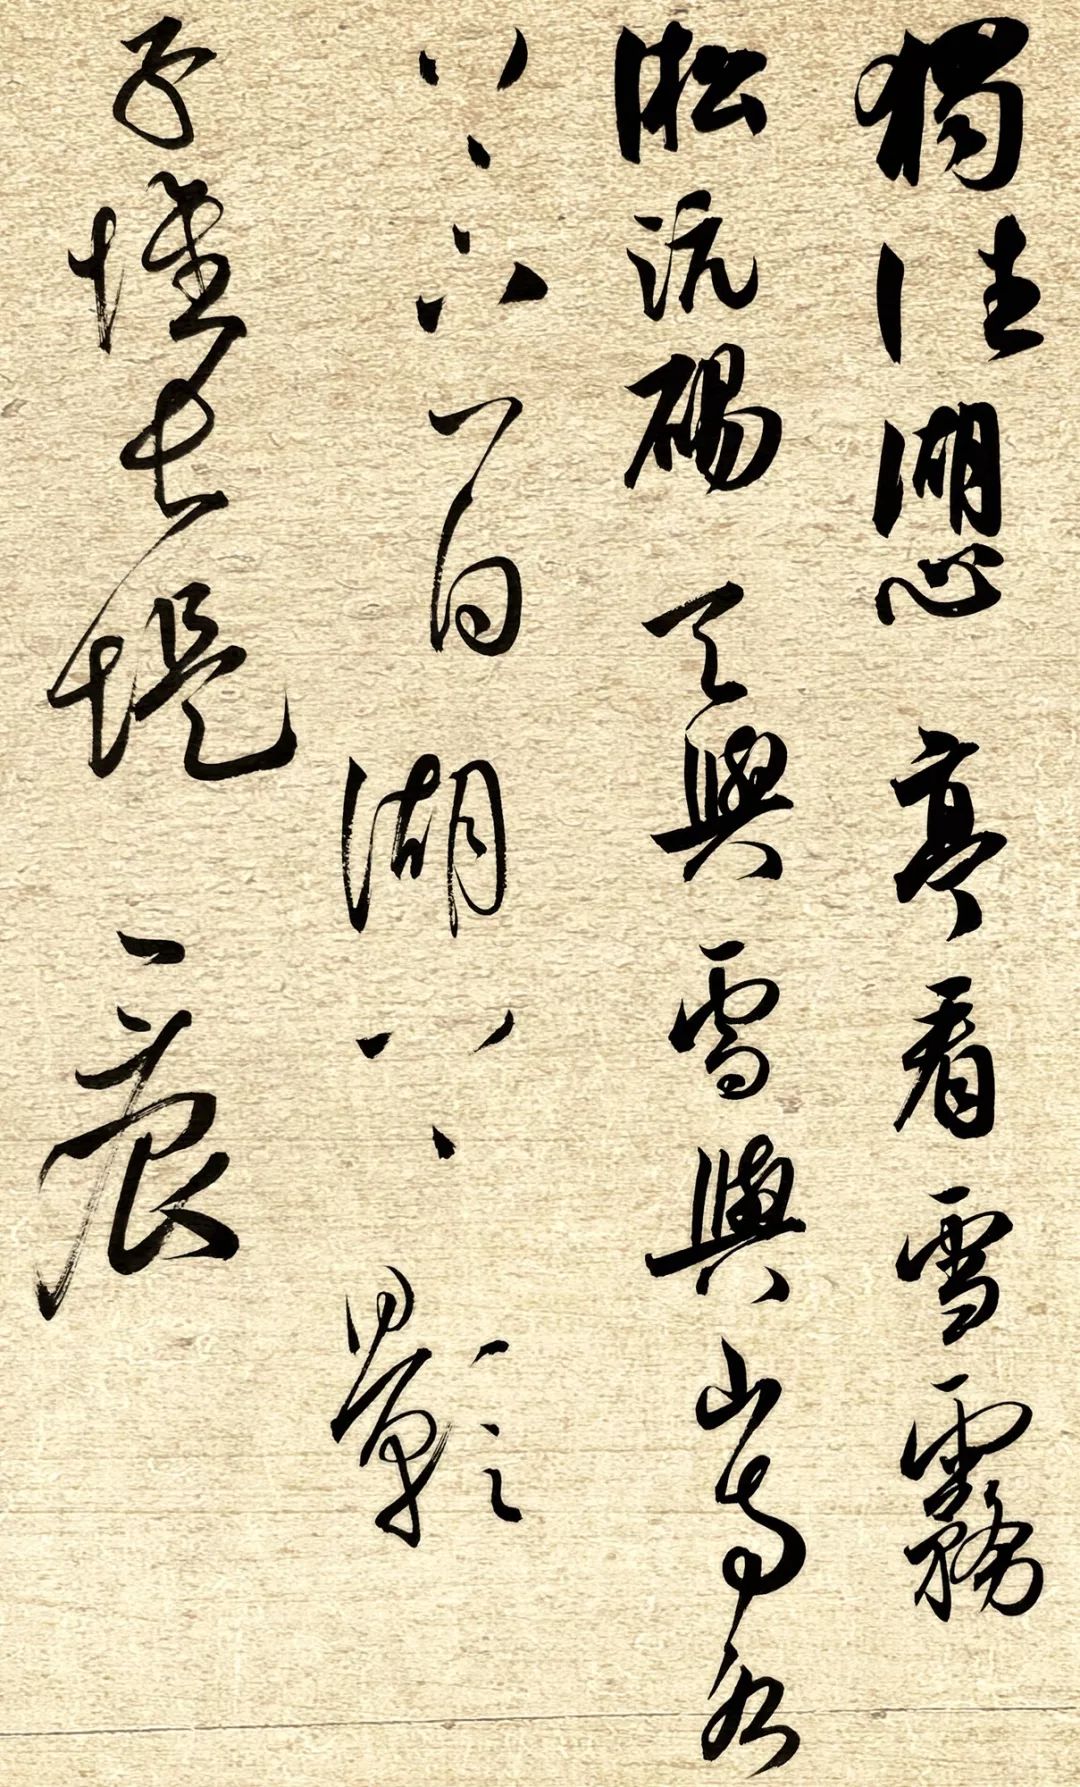 獨往湖心亭看雪霧
淞沆碭天與雲與山与水
上下一白湖上影
子惟長堤一痕